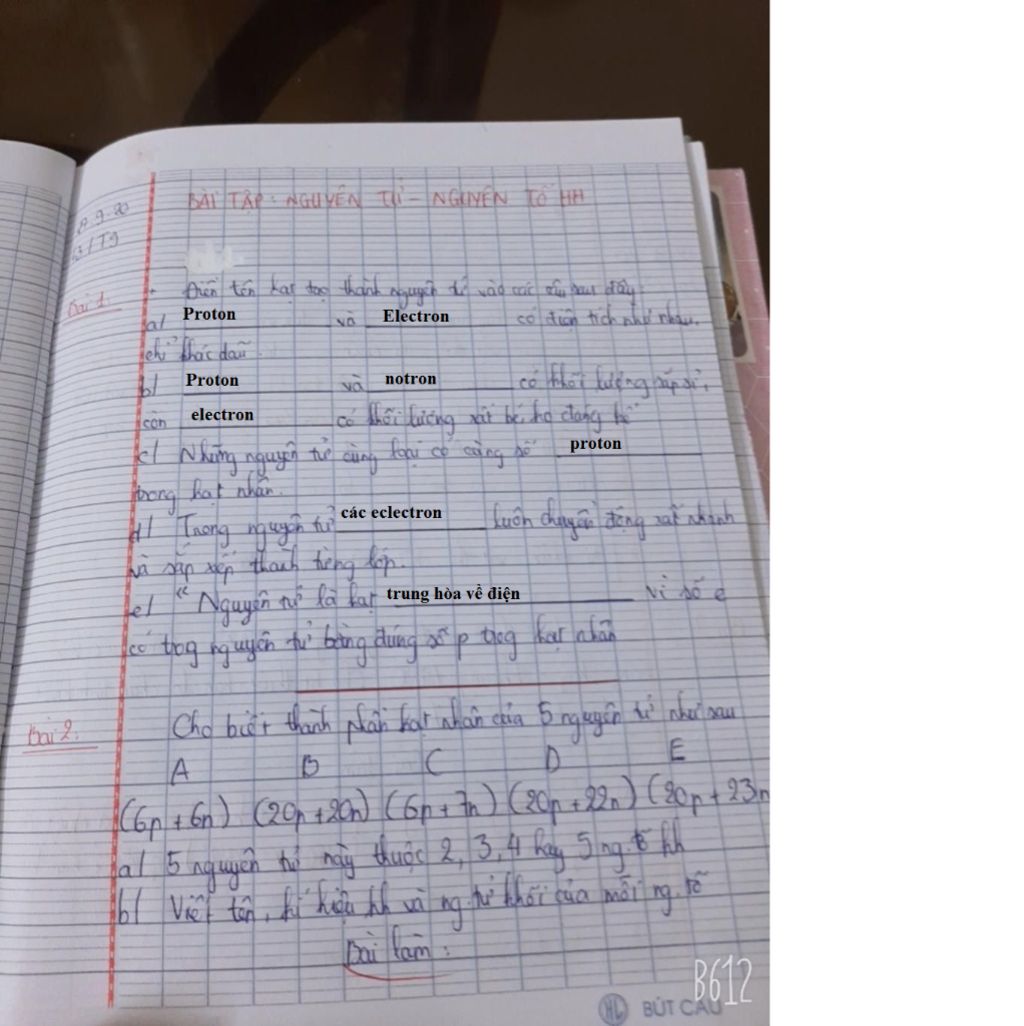 BÀI TẬP: NGUYÊN TỬ - NGUYÊN TỐ HH
9-20
Bài 1:
Điền tên hạt tạo thành nguyên tử vào các câu sau đây:
a/ Proton và Electron có điện tích như nhau,
chỉ khác dấu
b/ Proton và notron có khối lượng sấp sỉ,
còn electron có khối lượng rất bé, ko đáng kể
c/ Những nguyên tử cùng loại có cùng số proton
trong hạt nhân.
d/ Trong nguyên tử các eclectron luôn chuyển động rất nhanh
và sắp xếp thành từng lớp.
e/ "Nguyên tử là hạt trung hòa về điện vì số e
có trog nguyên tử bằng đúng số p trog hạt nhân
Bài 2.
Cho biết thành phần hạt nhân của 5 nguyên tử như sau
A B C D E
(6p + 6n) (20p + 20n) (6p + 7n) (20p + 22n) (20p + 23n
a/ 5 nguyên tử này thuộc 2, 3, 4 hay 5 ng.tố hh
b/ Viết tên, kí hiệu hh và ng.tử khối của mỗi ng.tố
Bài làm:
B612
HL BÚT CẬU